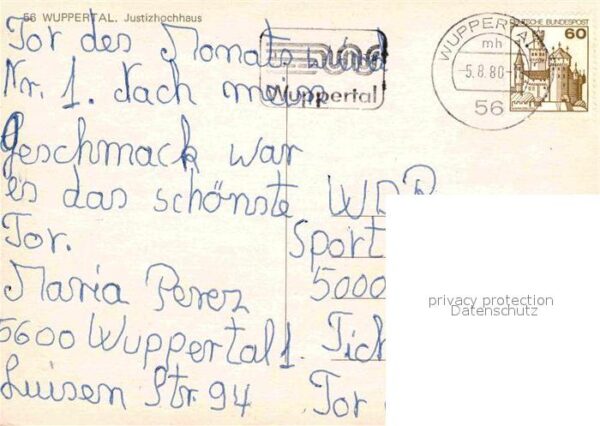 56 WUPPERTAL. Justizhochhaus
Tor des Monats wird
Nr. 1. Nach meim
Geschmack war
es das schönste
Tor.
Maria Perez
5600 Wuppertal 1.
Luisen Str 94
WDR
Sport
5000
Tor
Wuppertal
WUPPERTAL
mh
-5.8.80-
56
DEUTSCHE BUNDESPOST
60
privacy protection
Datenschutz